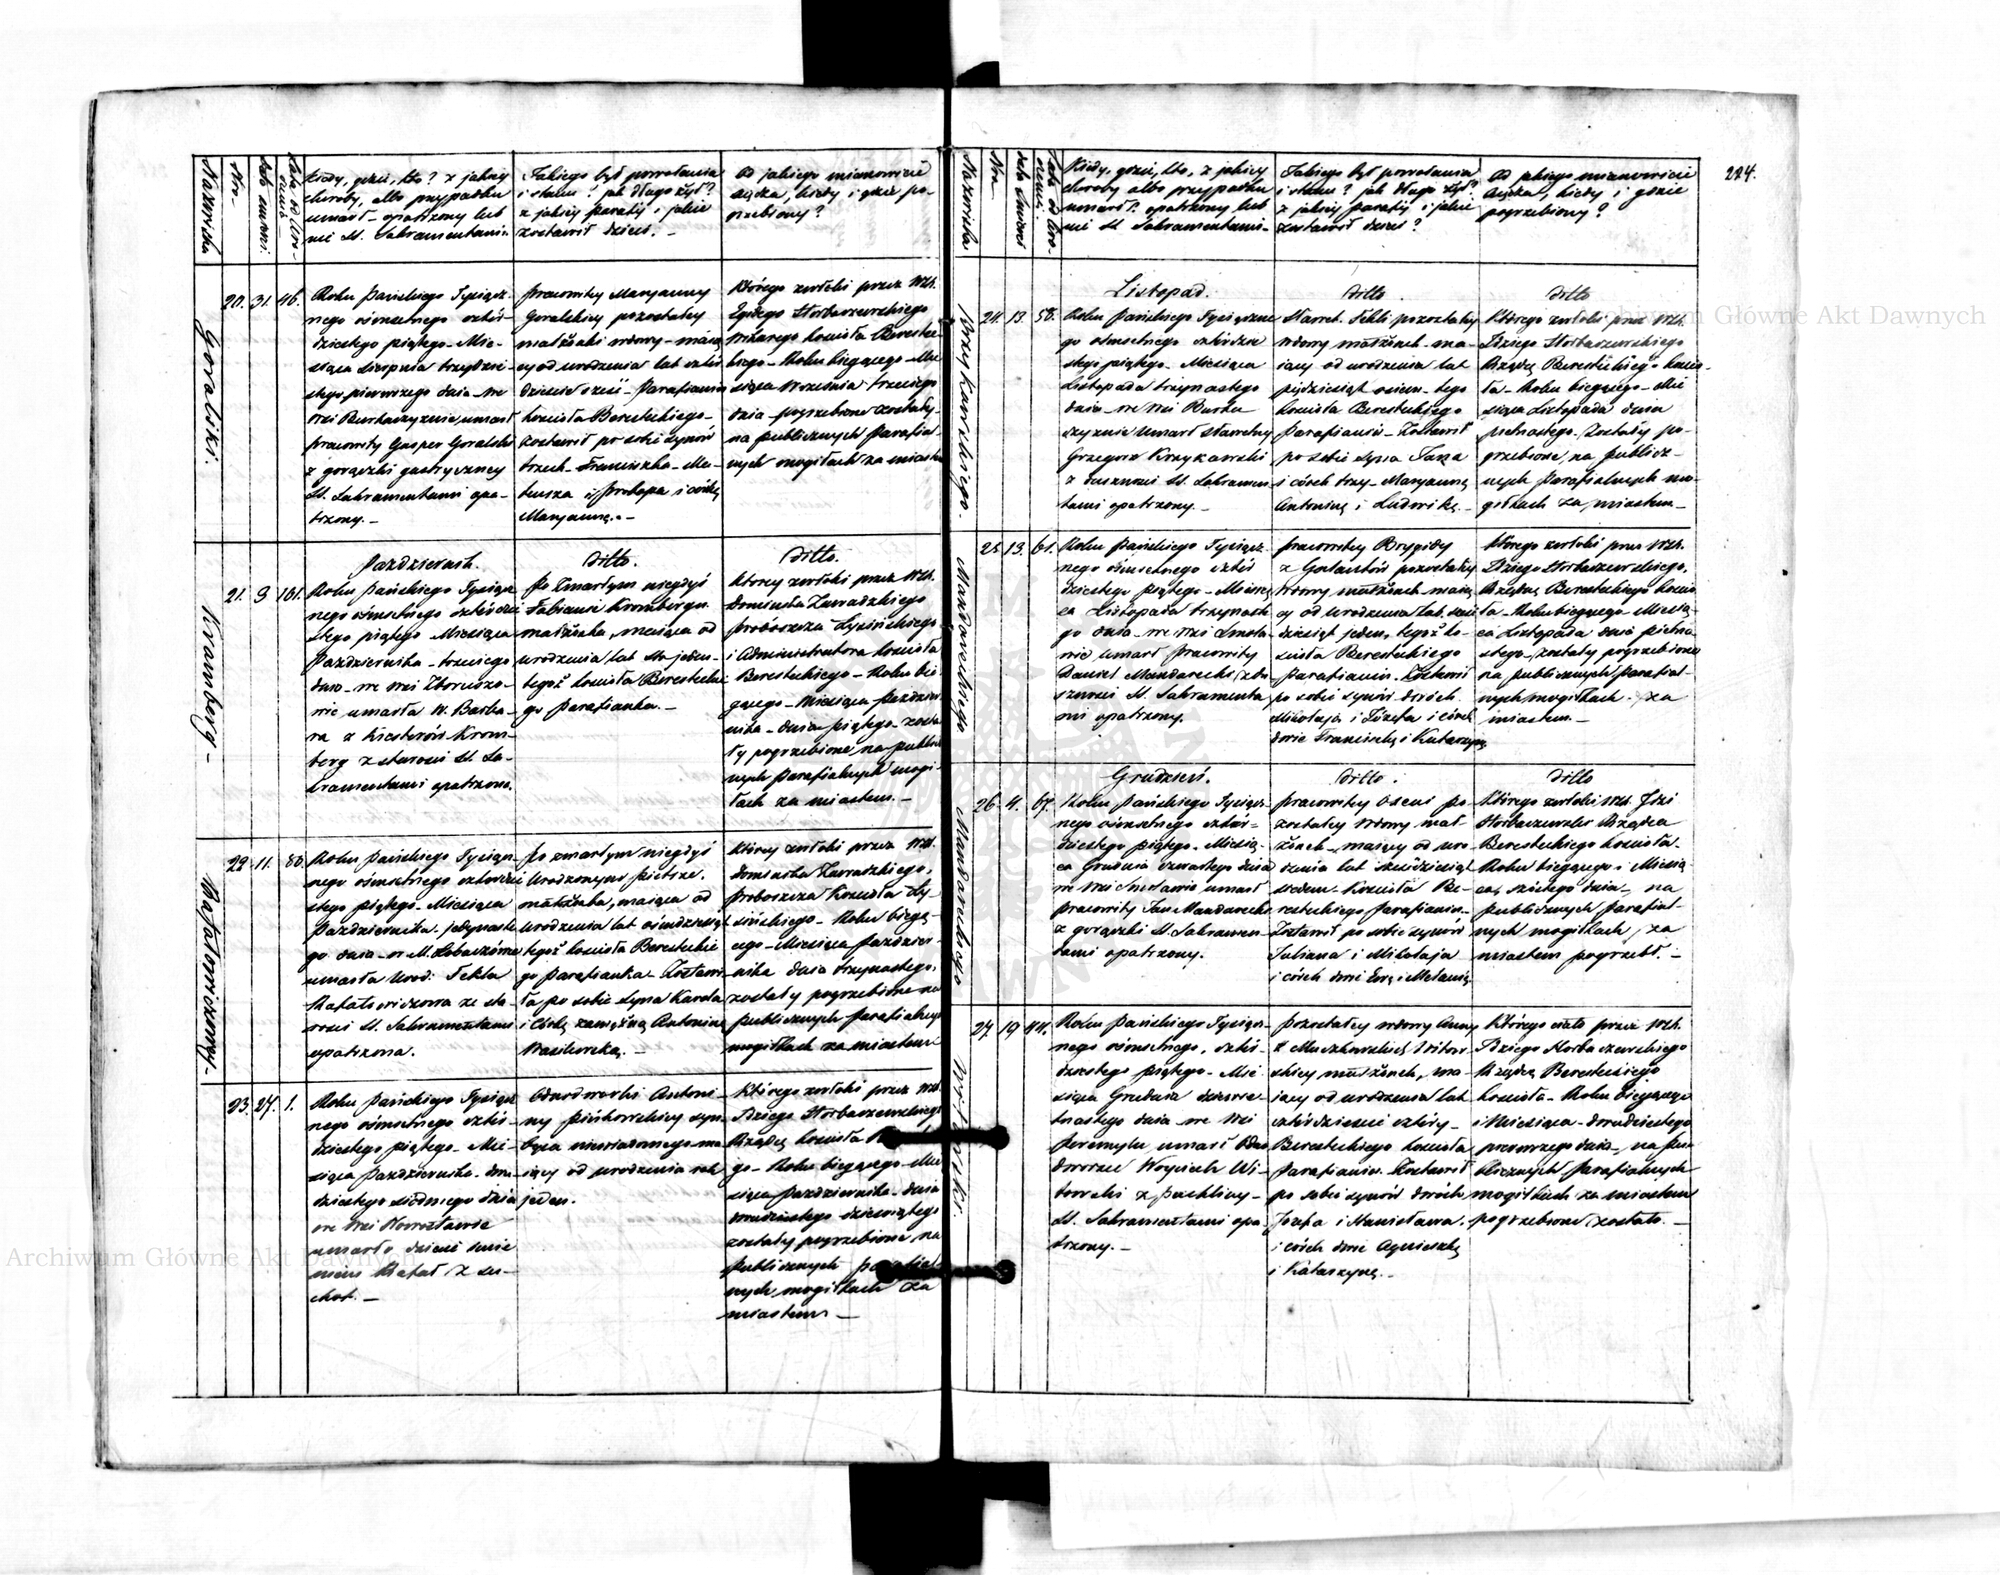 Nazwiska
Nro
Data śmierci
Lata od uro-
dzenia
Kiedy, gdzie, kto? z jakiej
choroby, albo przypadku
umarł - opatrzony lub
nie St. Sakramentami.
Jakiego był powołania
i stanu? jak długo żył?
z jakiej parafij i jakie
zostawił dzieci. -
Od jakiego mianowicie
Księdza, kiedy i gdzie po-
grzebiony?
Goralski.
20. 31. 46.
Roku Pańskiego Tysiącz-
nego ośmsetnego czter-
dziestego piątego - Mie-
siąca Sierpnia trzydzie-
stego pierwszego dnia - we
Wsi umarł
pracowity Gasper Goralski
z gorączki gastryczney
St. Sakramentami opa-
trzony. -
pracowitey Maryanny
Goralskiey pozostałey
małżonki wdowy - mają-
cy od urodzenia lat czter-
dzieście sześć - Parafianin
kościoła Beresteckiego -
zostawił po sobie synów
trzech - Franciszka - Ma-
teusza i Prokopa i córkę
Maryannę. -
Którego zwłoki przez WX.
Idziego Horbaczewskiego
kościoła Bereste-
ckiego - Roku bieżącego - Mie-
siąca Września trzeciego
dnia - pogrzebione zostały -
na publicznych Parafial-
nych mogiłach za miastem
Kramberg -
Październik.
Ditto.
Ditto.
21. 3. 101.
Roku Pańskiego Tysiącz-
nego ośmsetnego czterdzie-
stego piątego Miesiąca
Października - trzeciego
dnia - we Wsi
umarła W. Barba-
ra z Krom-
berg z starości St. Sa-
kramentami opatrzona.
Po Zmarłym niegdyś
Fabianie Krombergu
małżonka, mająca od
urodzenia lat sto jeden -
tegoż kościoła Berestecki-
go Parafianka. -
Którey zwłoki przez WX.
Dominika Zawadzkiego
Proboszcza
i Administratora kościoła
Beresteckiego - Roku bie-
żącego - Miesiąca Paździer-
nika - dnia piątego - zosta-
ły pogrzebione na publi-
cznych Parafialnych mogi-
łach za miastem. -
Rafałowiczowey -
22. 11. 80.
Roku Pańskiego Tysiącz-
nego ośmsetnego czterdzie-
stego piątego - Miesiąca
Października - jedynaste-
go dnia - w M.
umarła Urod: Tekla
Rafałowiczowa ze sta-
rości St. Sakramentami
opatrzona.
Po zmarłym niegdyś
Urodzonym Pietrze.
małżonka, mająca od
urodzenia lat ośmdziesiąt
tegoż kościoła Berestecki-
go Parafianka - Zostawi-
ła po sobie syna Karola
i Córkę zamężną Antoninę
Wasilewską. -
Którey zwłoki przez WX.
Dominika Zawadzkiego,
Proboszcza Kościoła
- Roku bieżą-
cego - Miesiąca Paździer-
nika dnia trzynastego.
zostały pogrzebione na
publicznych Parafialnych
mogiłkach za miastem
23. 27. 1.
Roku Pańskiego Tysiącz-
nego ośmsetnego czter-
dziestego piątego - Mie-
siąca Października - dwu-
dziestego siódmego dnia
we Wsi
umarło dziecie imie-
niem Rafał z su-
chot. -
Odnodworki Antoni-
ny Pińkowskiey syn
oyca niewiadomego ma-
iący od urodzenia rok
jeden.
Którego zwłoki przez WX.
Idziego Horbaczewskiego
Rządcę kościoła
go - Roku bieżącego - Mie-
siąca Października - dnia
dwudziestego dziewiątego
zostały pogrzebione na
publicznych
nych mogiłkach za
miastem. -
224.
Nazwiska
Nro
Data śmierci
Lata od uro-
dzenia
Kiedy, gdzie, kto, z jakiej
choroby albo przypadku
umarł? opatrzony lub
nie St. Sakramentami -
Jakiego był powołania
i stanu? jak długo żył?
z jakiej parafij i jakie
zostawił dzieci?
Od jakiego mianowicie
Księdza, kiedy i gdzie
pogrzebiony?
Krzykawskiego.
Listopad.
Ditto.
Ditto
24. 13. 58.
Roku Pańskiego Tysiączne-
go ośmsetnego czterdzie-
stego piątego - Miesiąca
Listopada trzynastego
dnia - we Wsi
umarł sławetny
Grzegorz Krzykawski
z duszności St. Sakramen-
tami opatrzony. -
Sławet. Tekli pozostałey
wdowy małżonek - ma-
iący od urodzenia lat
pięćdziesiąt osiem - tego
kościoła Beresteckiego
Parafianin - Zostawił
po sobie syna Jana
i córek trzy - Maryannę
Antoninę i Ludwikę. -
Którego zwłoki przez WX.
Idziego Horbaczewskiego
Rządcę Beresteckiego kościo-
ła - Roku bieżącego - Mie
siąca Listopada dnia
pietnastego - Zostały po-
grzebione, na publicz-
nych Parafialnych mo-
giłkach za miastem -
Mandareckiego
25. 13. 61.
Roku Pańskiego Tysiącz-
nego ośmsetnego czter-
dziestego piątego - Miesią-
ca Listopada trzynaste-
go dnia - we Wsi Smola-
wie umarł pracowity
Daniel Mandarecki z du-
szności St. Sakramenta-
mi opatrzony.
pracowitey Brygidy
z pozostałey
wdowy małżonek - mają-
cy od urodzenia lat sześć-
dziesiąt jeden, tegoż ko-
ścioła Beresteckiego
Parafianin. Zostawił
po sobie synów dwóch
Mikołaja i Józefa i córek
dwie Franciszkę i Katarzynę
Którego zwłoki przez WX.
Idziego Horbaczewskiego,
Rządcę Beresteckiego kościo-
ła - Roku bieżącego Miesią-
ca Listopada dnia pietna-
stego - zostały pogrzebione
na publicznych Parafial-
nych mogiłkach - za
miastem. -
Mandareckiego
Grudzień.
Ditto.
Ditto
26. 4. 67.
Roku Pańskiego Tysiącz-
nego ośmsetnego czter-
dziestego piątego - Miesią-
ca Grudnia czwartego dnia
we Wsi umarł
pracowity Jan Mandarecki
z gorączki St. Sakramen-
tami opatrzony.
pracowitey po-
zostałey wdowy mał-
żonek - mający od uro-
dzenia lat sześćdziesiąt
siedem - Kościoła Be-
resteckiego Parafianin -
Zostawił po sobie synów
Juliana i Mikołaja
i córek dwie Ewę i Melanię
Którego zwłoki WX. Idzi
Horbaczewski Rządca
Beresteckiego kościoła -
Roku bieżącego - Miesią-
ca, szóstego dnia - na
publicznych Parafial-
nych mogiłkach, za
miastem pogrzebł. -
Witowski.
27. 19. 44.
Roku Pańskiego Tysiącz-
nego ośmsetnego, czter-
dziestego piątego - Mie-
siąca Grudnia dziewie-
tnastego dnia - we Wsi
Peremylu umarł Odno-
dworzec Woyciech Wi-
towski z puchliny -
St. Sakramentami opa-
trzony. -
pozostałey wdowy Anny
z Witow-
skiey małżonek, ma-
iący od urodzenia lat
czterdzieście cztéry -
Beresteckiego kościoła
Parafianin - Zostawił
po sobie synów dwóch
Józefa i Stanisława.
i córek dwie Agnieszkę
i Katarzynę. -
Którego ciało przez WX.
Idziego Horbaczewskiego
Rządcę Beresteckiego
kościoła - Roku bieżącego
i Miesiąca - dwudziestego
pierwszego dnia - na pu-
blicznych Parafialnych
mogiłkach za miastem
pogrzebione zostało. -
Archiwum Główne Akt Dawnych
Archiwum Główne Akt Dawnych